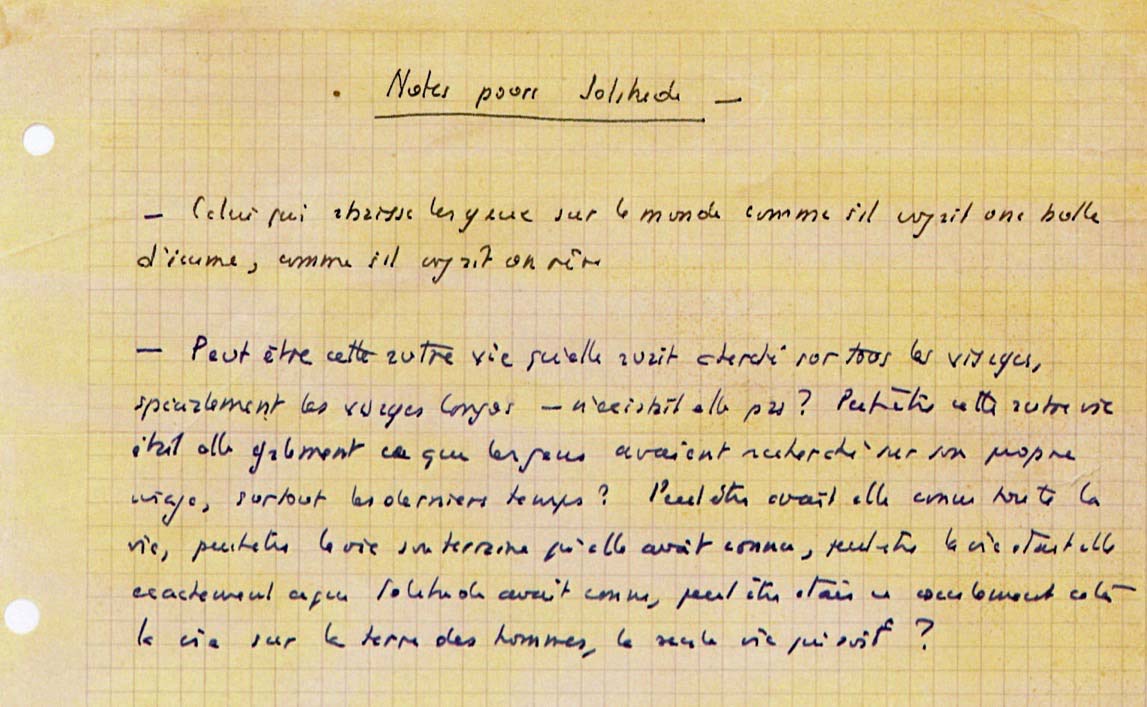 . Notes pour Solitude —
— Celui qui abaisse les yeux sur le monde comme s'il voyait une bulle
d'écume, comme s'il voyait un rêve
— Peut être cette autre vie qu'elle avait cherché sur tous les visages,
spécialement les visages longs — n'existait elle pas ? Peut être cette autre vie
était elle également ce que les gens avaient recherché sur son propre
visage, surtout les derniers temps ? Peut être avait elle connu toute la
vie, peut etre la vie souterraine qu'elle avait connu, peut etre la vie était elle
exactement ce que Solitude avait connu, peut être était ce seulement cela
la vie sur la terre des hommes, la seule vie qui soit ?